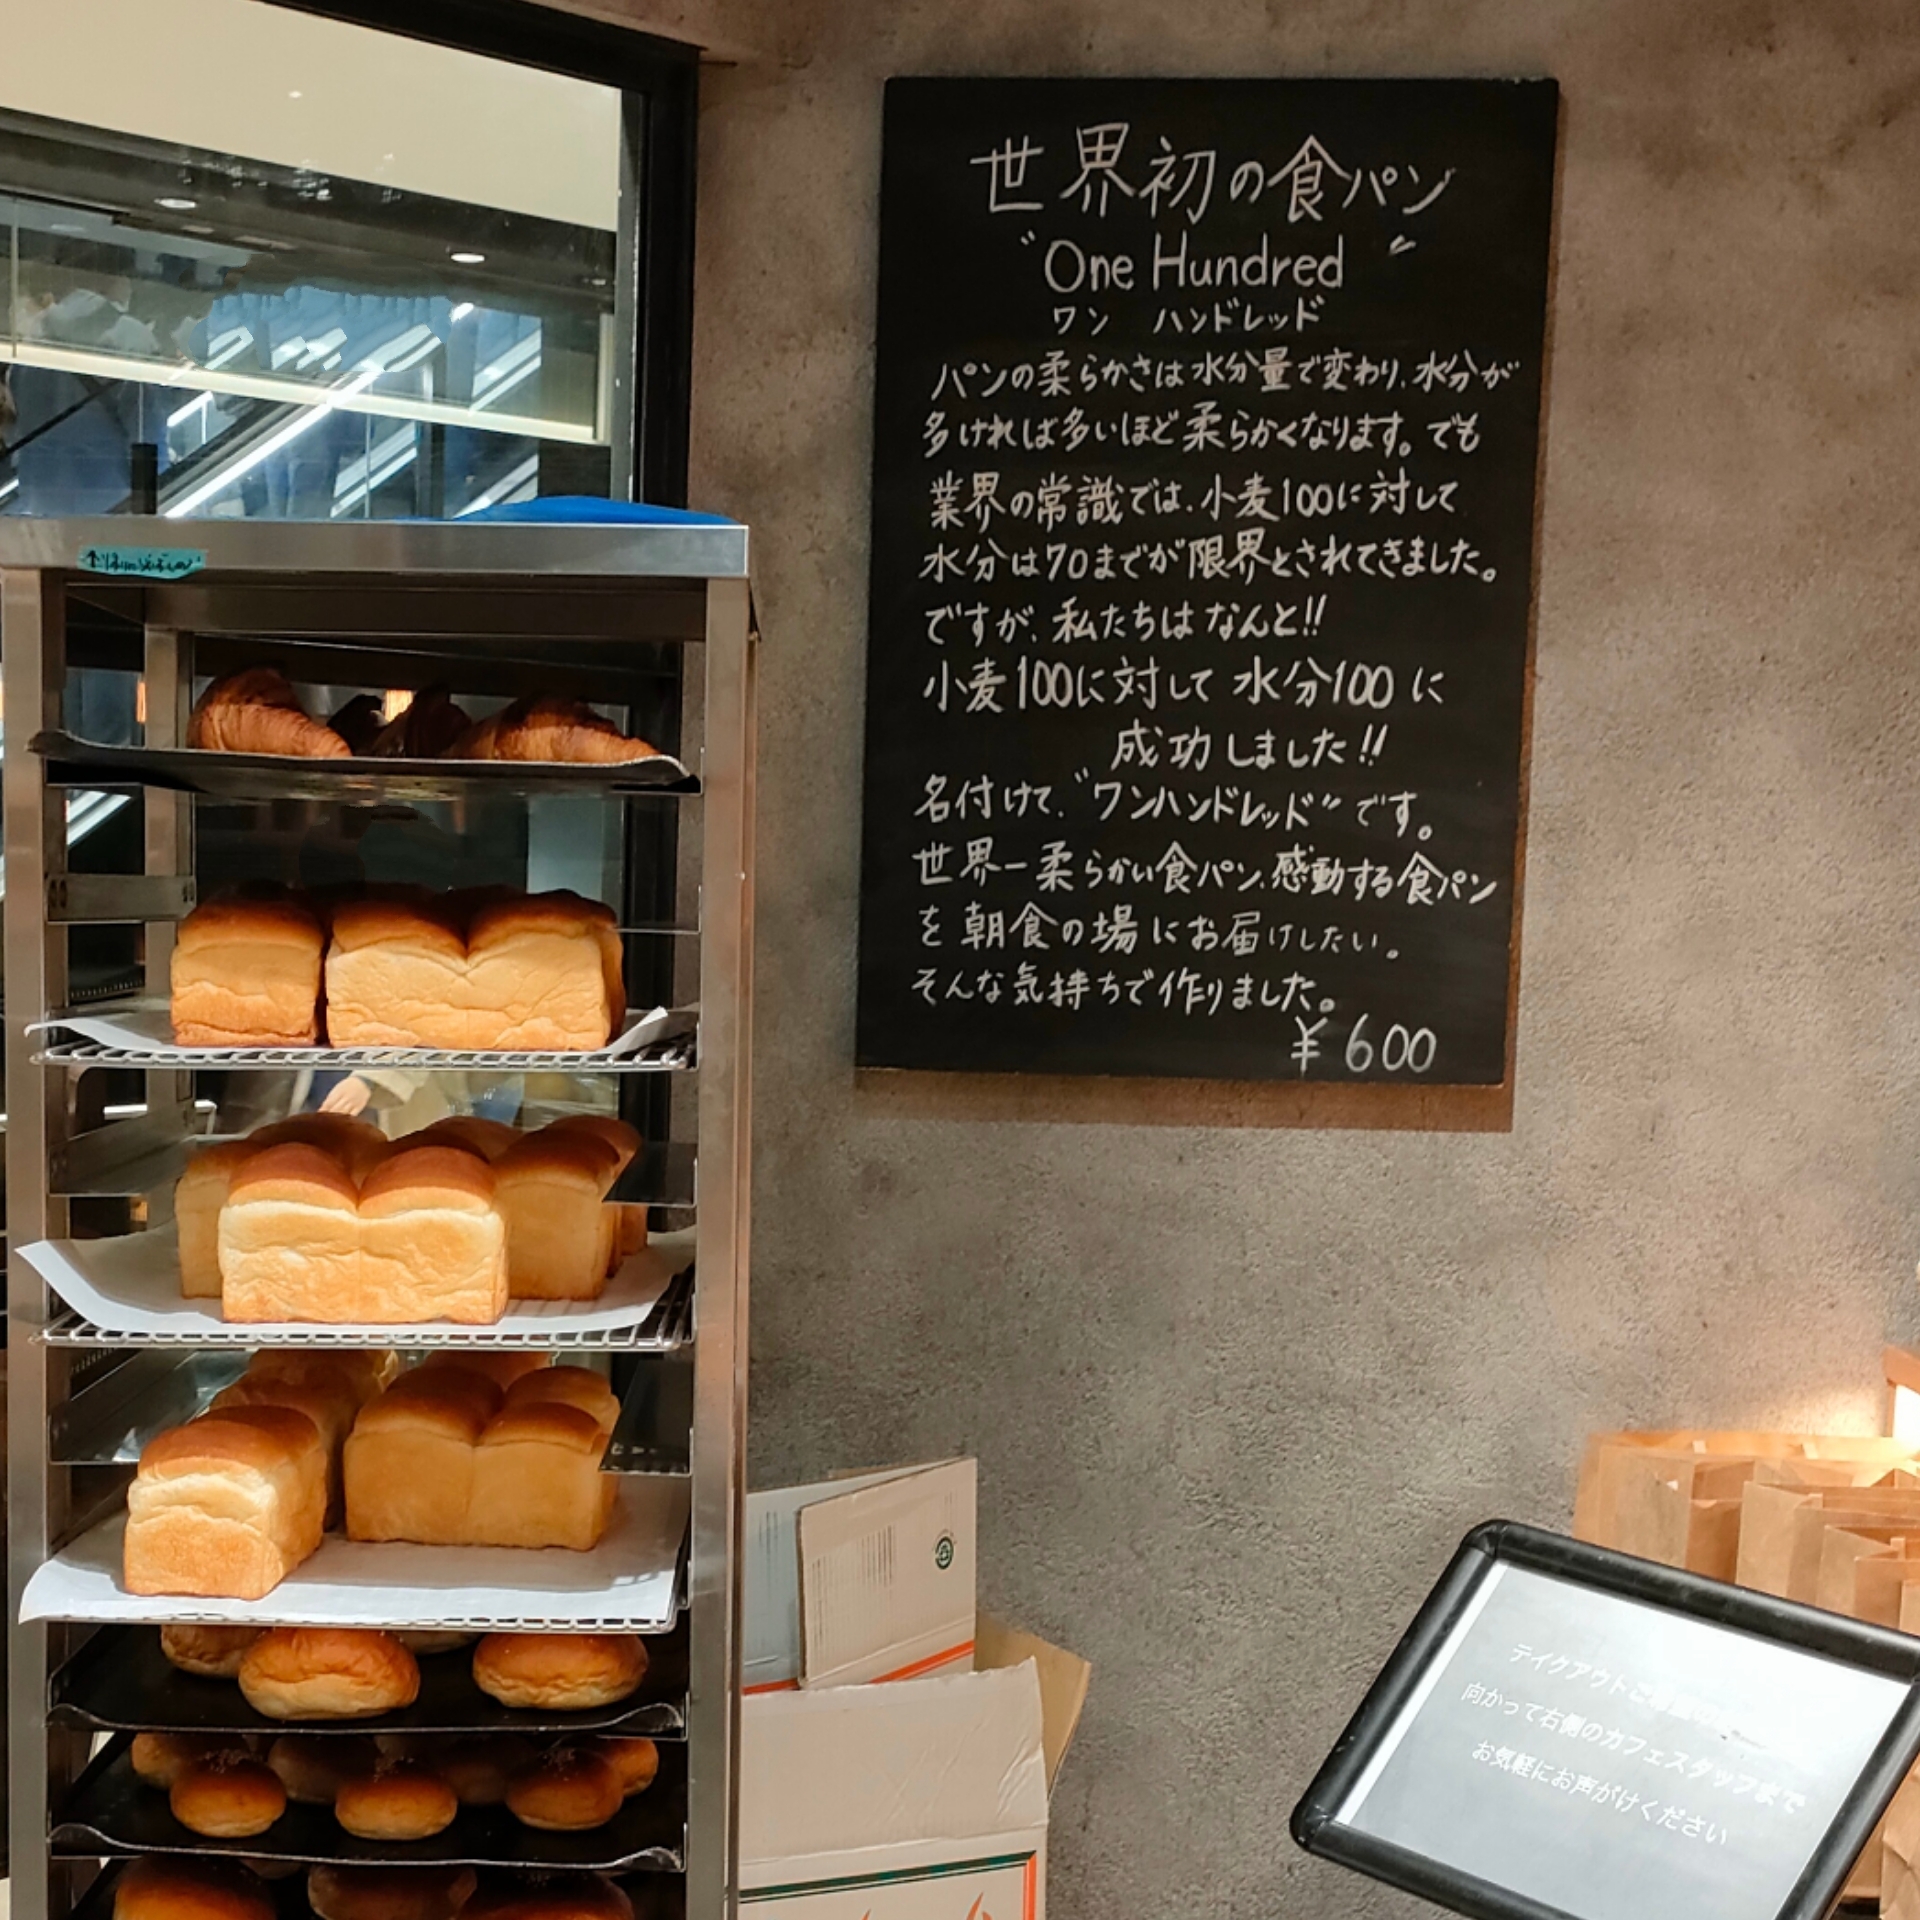 世界初の食パン
"One Hundred"
ワン ハンドレッド
パンの柔らかさは水分量で変わり、水分が
多ければ多いほど柔らかくなります。でも
業界の常識では、小麦100に対して
水分は70までが限界とされてきました。
ですが、私たちはなんと!!
小麦100に対して水分100に
成功しました!!
名付けて、"ワンハンドレッド"です。
世界一柔らかい食パン、感動する食パン
を朝食の場にお届けしたい。
そんな気持ちで作りました。
¥600
テイクアウトご
向かって右側のカフェスタッフまで
お気軽にお声がけください